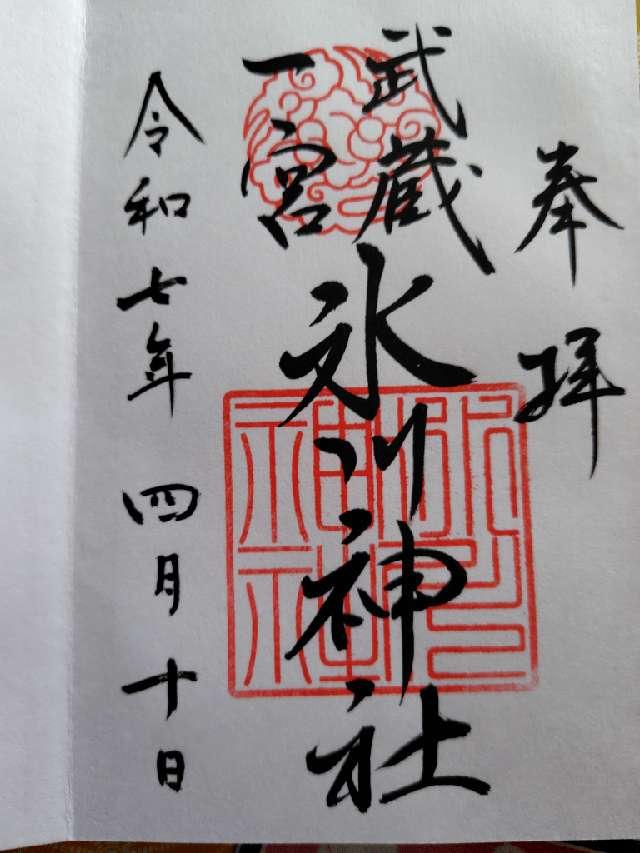 奉拝
武蔵
一宮
氷川神社
令和七年 四月十日